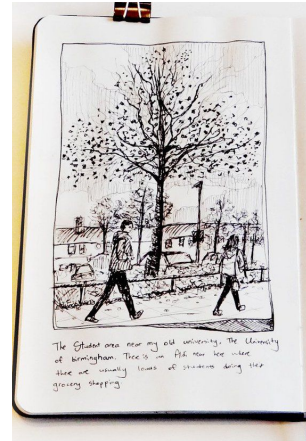 The Student area near my old university. The University
of birmingham. There is an Aldi near here where
there are usually loads of students doing their
grocery shopping.